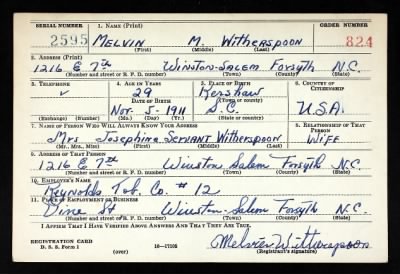 SERIAL NUMBER 1. NAME (Print) ORDER NUMBER
2595 MELVIN M. Witherspoon 824
(First) (Middle) (Last)
2. ADDRESS (Print)
1216 E 7th Winston-Salem Forsyth N.C.
(Number and street or R. F. D. number) (Town) (County) (State)
3. TELEPHONE 4. AGE IN YEARS 5. PLACE OF BIRTH 6. COUNTRY OF CITIZENSHIP
29 Kershaw
DATE OF BIRTH (Town or county)
Nov-5-1911 S.C. U.S.A.
(Exchange) (Number) (Mo.) (Day) (Yr.) (State or country)
7. NAME OF PERSON WHO WILL ALWAYS KNOW YOUR ADDRESS 8. RELATIONSHIP OF THAT PERSON
Mrs. Josephine Servant Witherspoon Wife
(Mr., Mrs., Miss) (First) (Middle) (Last)
9. ADDRESS OF THAT PERSON
1216 E 7th Winston Salem Forsyth N.C.
(Number and street or R. F. D. number) (Town) (County) (State)
10. EMPLOYER'S NAME
Reynolds Tob. Co. # 12
11. PLACE OF EMPLOYMENT OR BUSINESS
Vine St Winston-Salem Forsyth N.C.
(Number and street or R. F. D. number) (Town) (County) (State)
I AFFIRM THAT I HAVE VERIFIED ABOVE ANSWERS AND THAT THEY ARE TRUE.
REGISTRATION CARD
D. S. S. Form 1 (over) Melvin Witherspoon
(Registrant's signature)